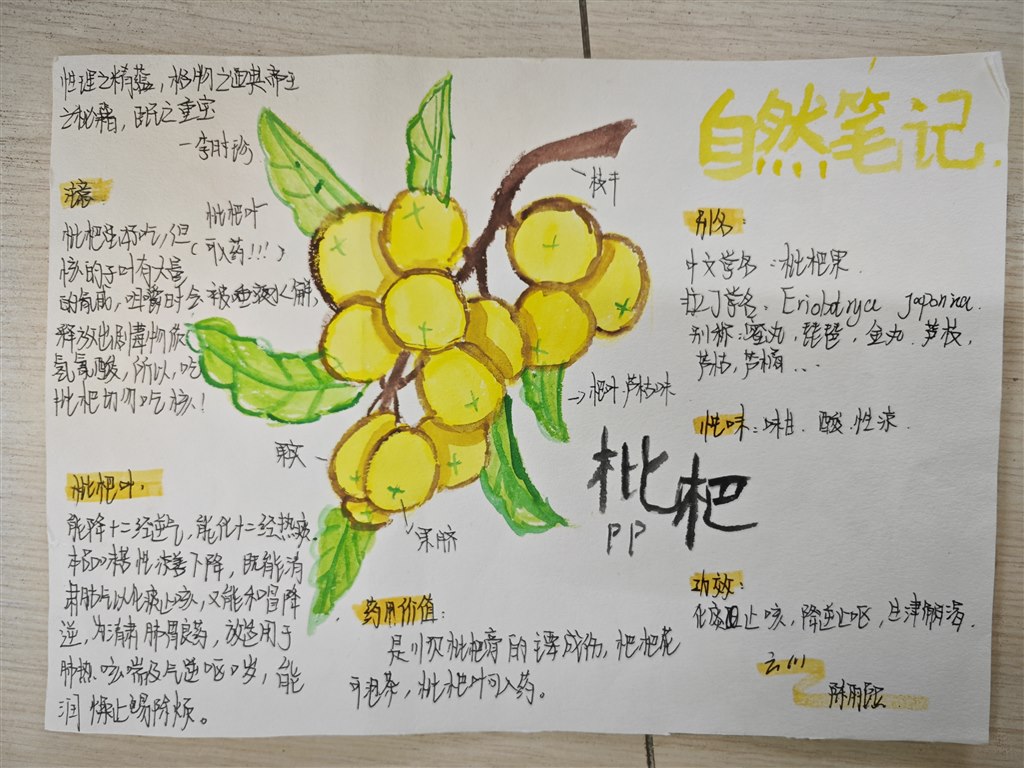 自然笔记.
性理之精蕴，格物之通典帝王
之秘籍，臣民之重宝
—李时珍
枇杷生杯吃，但
核的子叶有大量
的氰苷，咀嚼时会被唾液水解，
释放出剧毒物质
氢氰酸，所以，吃
枇杷切勿吃核！
枇杷叶
(可入药!!!)
枝干
果实
果脐
枇杷叶.
能降十二经逆气，能化十二经热痰.
本品性善下降，既能清
肃肺气以化痰止咳，又能和胃降
逆，为清肃肺胃良药，故适用于
肺热咳喘及气逆呕哕，能
润燥止渴除烦。
药用价值:
是川贝枇杷膏的主要成份，枇杷花
可泡茶，枇杷叶可入药。
枇杷
PP
别名:
中文学名:枇杷果.
拉丁学名:Eriobotrya japonica.
别称:蜜丸,琵琶,金丸.芦枝,
芦桔,芦橘...
性味:味甘.酸.性凉.
功效:
化痰止咳,降逆止呕,生津润渴.